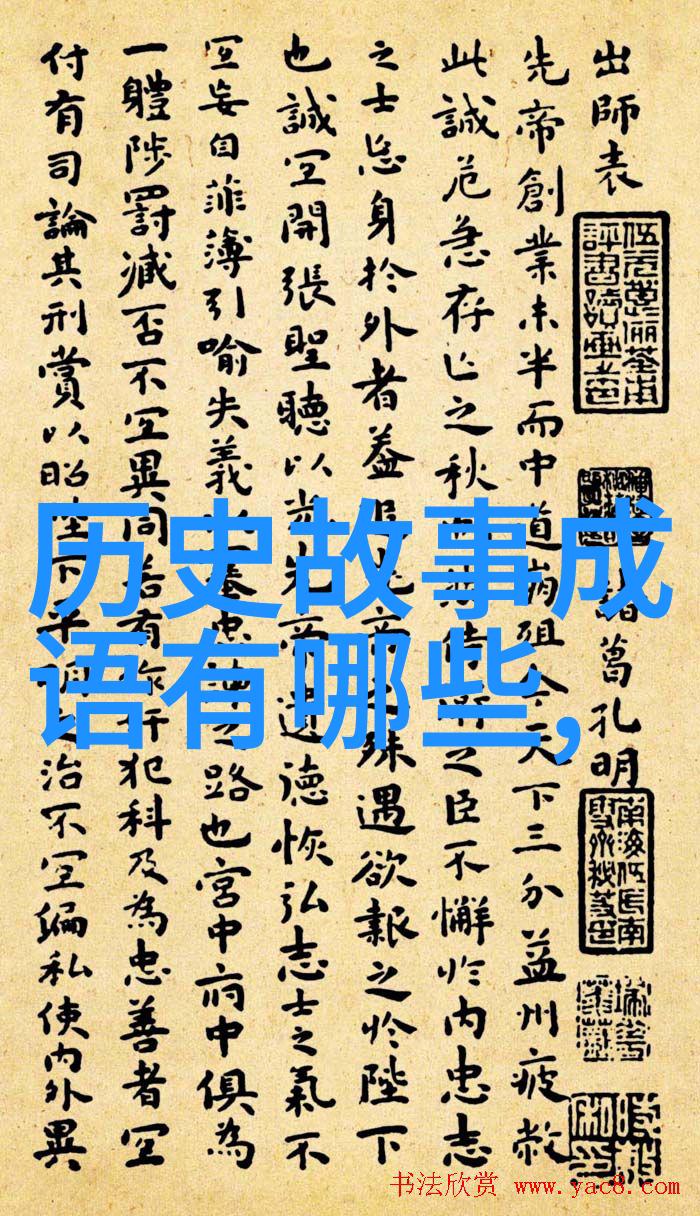 出師表
諸葛孔明
先帝創業未半而中道崩殂今天下三分益州疲敝
此誠危急存亡之秋也然侍衛之臣不懈於內忠志
之士忘身於外者蓋追先帝之殊遇欲報之於陛下
也誠宜開張聖聽以光先帝遺德恢弘志士之氣不
宜妄自菲薄引喻失義以塞忠諫之路也宮中府中俱為
一體陟罰臧否不宜異同若有作奸犯科及為忠善者宜
付有司論其刑賞以昭陛下平明之治不宜偏私使內外異
历史故事成
语有哪些,
书法欣赏 www.yac8.com